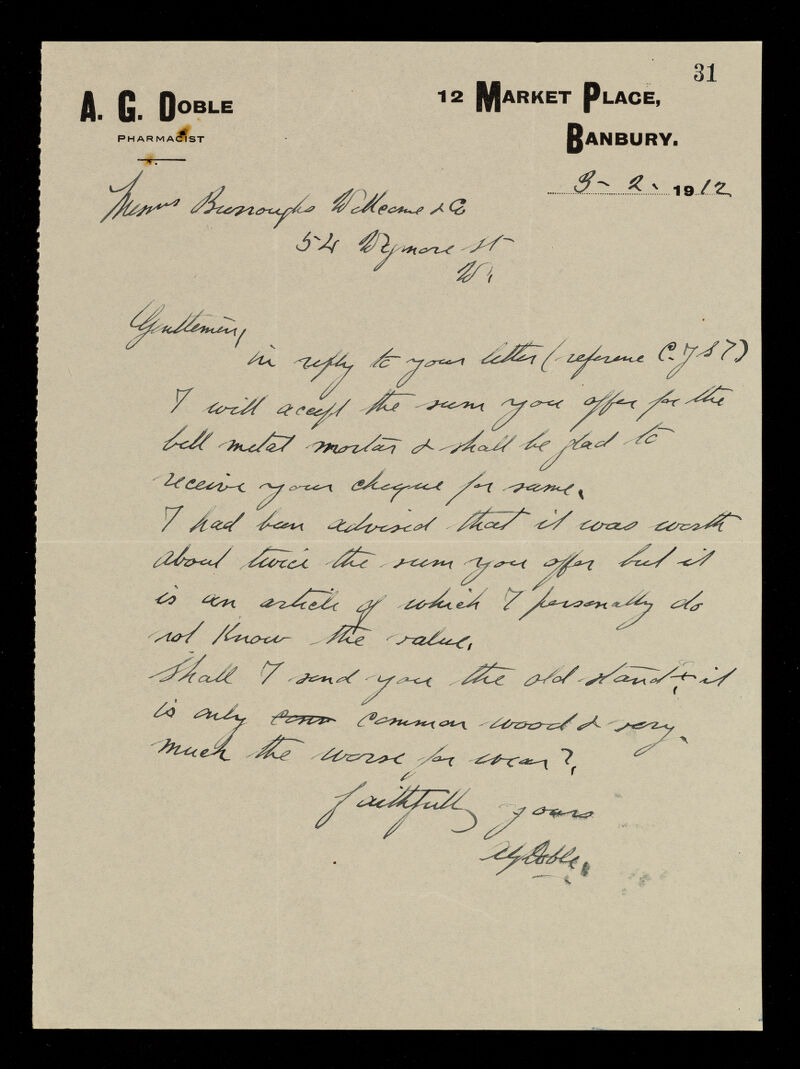 31
A. G. DOBLE
PHARMACIST
12 MARKET PLACE,
BANBURY.
3-2. 1912
Messrs Burroughs Wellcome & Co
54 Wigmore St
W.
Gentlemen,
in reply to your letter (reference C.J.S.T)
I will accept the sum you offer for the
bell metal mortar & shall be glad to
receive your cheque for same.
I had been advised that it was worth
about twice the sum you offer but it
is an article of which I personally do
not know the value.
Shall I send you the old stand, it
is only com common wood & very
much the worse for wear?
Faithfully yours
AG Doble.